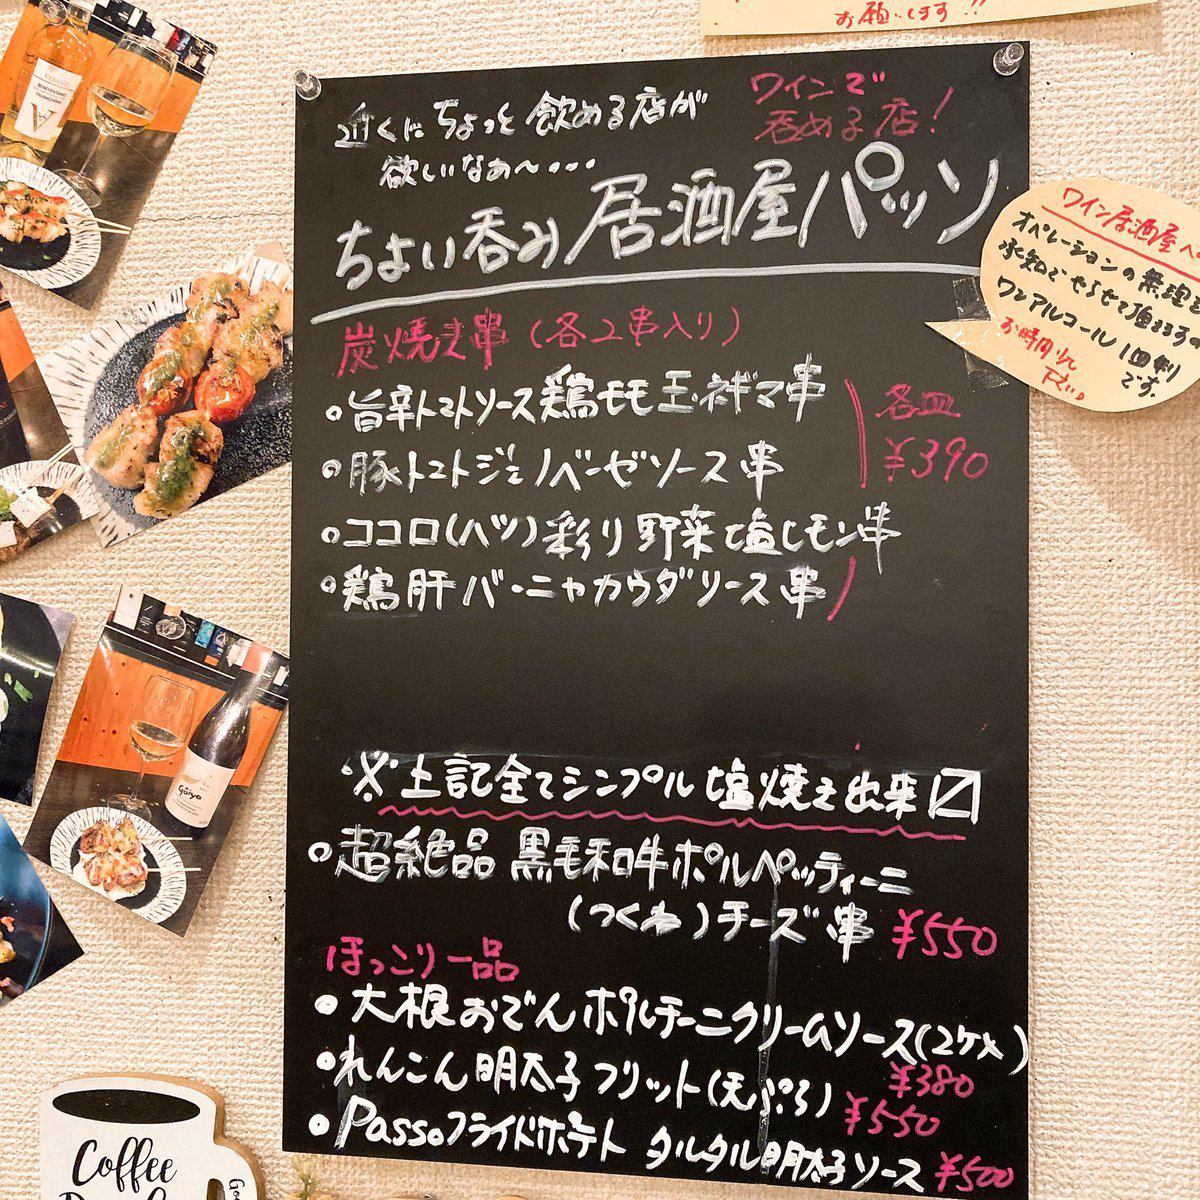 お願いします!!
近くにちょっと飲める店が
欲しいなぁ〜・・・
ワインで
呑める店!
ちょい呑み居酒屋パッソ
炭焼き串(各2串入り)
・旨辛トマトソース鶏モモ玉ネギマ串
・豚トマトジェノベーゼソース串
各皿
¥390
・ココロ(ハツ)彩り野菜塩レモン串
・鶏肝バーニャカウダソース串
※上記全てシンプル塩焼き出来〼
・超絶品 黒毛和牛ポルペッティーニ
(つくね)チーズ串 ¥550
ほっこり一品
・大根おでんポルチーニクリームソース(2ケ入)
¥380
・れんこん明太子フリット(天ぷら)
¥550
・Passoフライドポテト タルタル明太子ソース ¥500
ワイン居酒屋パ
オペレーションの無理
承知でやらせて頂きます
ワンアルコール1皿制
です。
Gaiya
Coffee